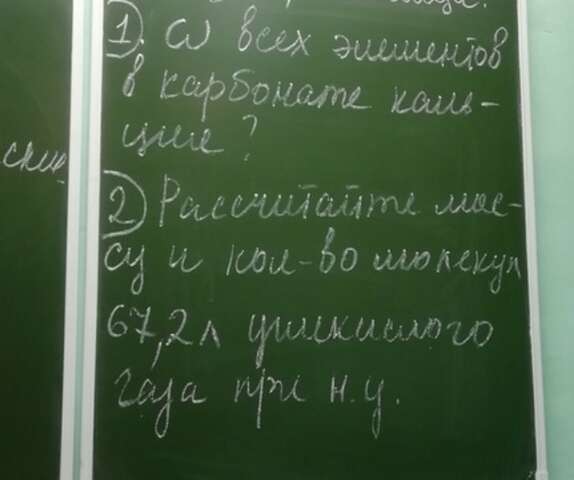 1) ω всех элементов
в карбонате каль-
ция?
2) Рассчитайте мас-
су и кол-во молекул
67,2 л углекислого
газа при н.у.